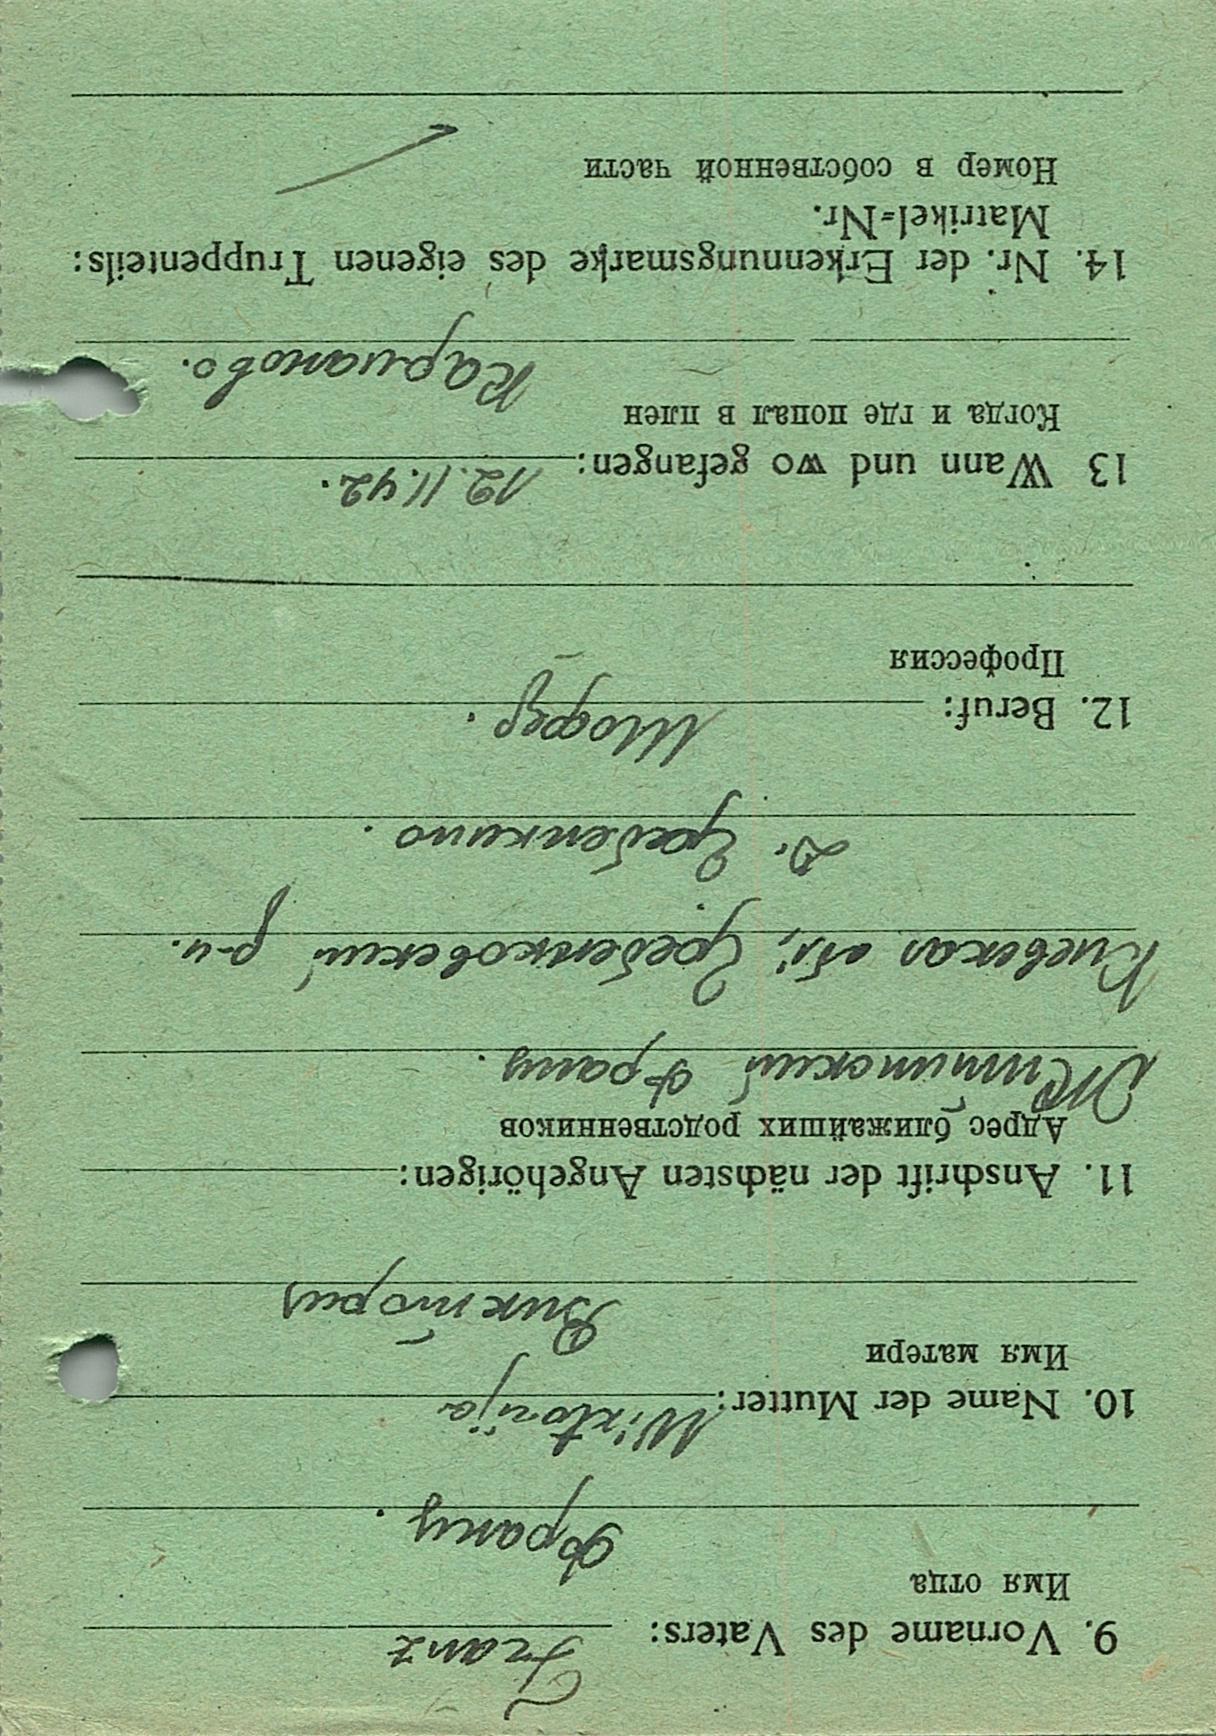 9. Vorname des Vaters: Franz
Имя отца
Франц.
10. Name der Mutter: Wiktorija
Имя матери
Виктория
11. Anschrift der nächsten Angehörigen:
Адрес ближайших родственников
Франц.
Киевская обл; Гребенковский р-н.
д. Гребенкино.
12. Beruf: Шофер.
Профессия
13 Wann und wo gefangen: 12.11.42.
Когда и где попал в плен
Карманово.
14. Nr. der Erkennungsmarke des eigenen Truppenteils:
Matrikel=Nr.
Номер в собственной части